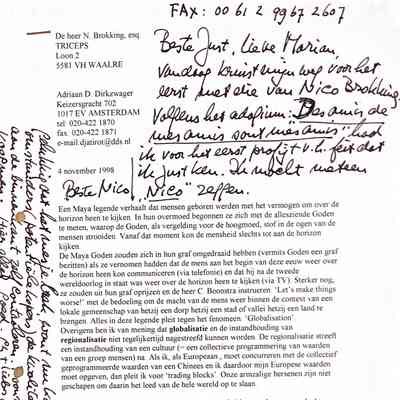 FAX: 00 61 2 9967 2607
De heer N. Brokking, esq.
TRICEPS
Loon 2
5581 VH WAALRE
Beste Just, lieve Marian,
Vandaag kruist mijn weg voor het
eerst met die van Nico Brokking.
Volgens het adagium: "Les amis de
mes amis sont mes amis" had
ik voor het eerst profijt v.h. feit dat
ik Just ken. Ik mocht meteen
"Nico" zeggen.
Adriaan D. Dirkwager
Keizersgracht 702
1017 EV AMSTERDAM
tel 020-422 1870
fax 020-422 1871
e-mail djatirot@dds.nl
4 november 1998
Beste Nico,
Een Maya legende verhaalt dat mensen geboren werden met het vermogen om over de
horizon heen te kijken. In hun overmoed begonnen ze zich met de alziende Goden
te meten, waarop de Goden, als vergelding voor de hoogmoed, stof in de ogen van de
mensen strooiden. Vanaf dat moment kon de mensheid slechts tot aan de horizon
kijken.
De Maya Goden zouden zich in hun graf omgedraaid hebben (vermits Goden een graf
bezitten) als ze vernomen hadden dat de mens aan het begin van deze eeuw weer over
de horizon heen kon communiceren (via telefonie) en dat hij na de tweede
wereldoorlog in staat was weer over de horizon heen te kijken (via TV). Sterker nog,
ze zouden uit hun graf oprijzen en de heer C. Boonstra instrueren 'Let's make things
worse!' met de bedoeling om de macht van de mens weer binnen de context van een
lokale gemeenschap van hetzij een dorp hetzij een stad of vallei hetzij een land te
brengen. Alles in deze legende pleit tegen het fenomeen. 'Globalisation'
Overigens ben ik van mening dat globalisatie en de instandhouding van
regionalisatie niet tegelijkertijd nagestreefd kunnen worden. De regionalisatie streeft
een instandhouding van een cultuur (= een collectieve programmering van waarden
van een groep mensen) na. Als ik, als Europeaan, moet concurreren met de collectief
geprogrammeerde waarden van een Chinees en ik daardoor mijn Europese waarden
moet opgeven, dan pleit ik voor 'trading blocks'. Onze armzalige hersenen zijn niet
geschapen om daarin het leed van de hele wereld op te slaan